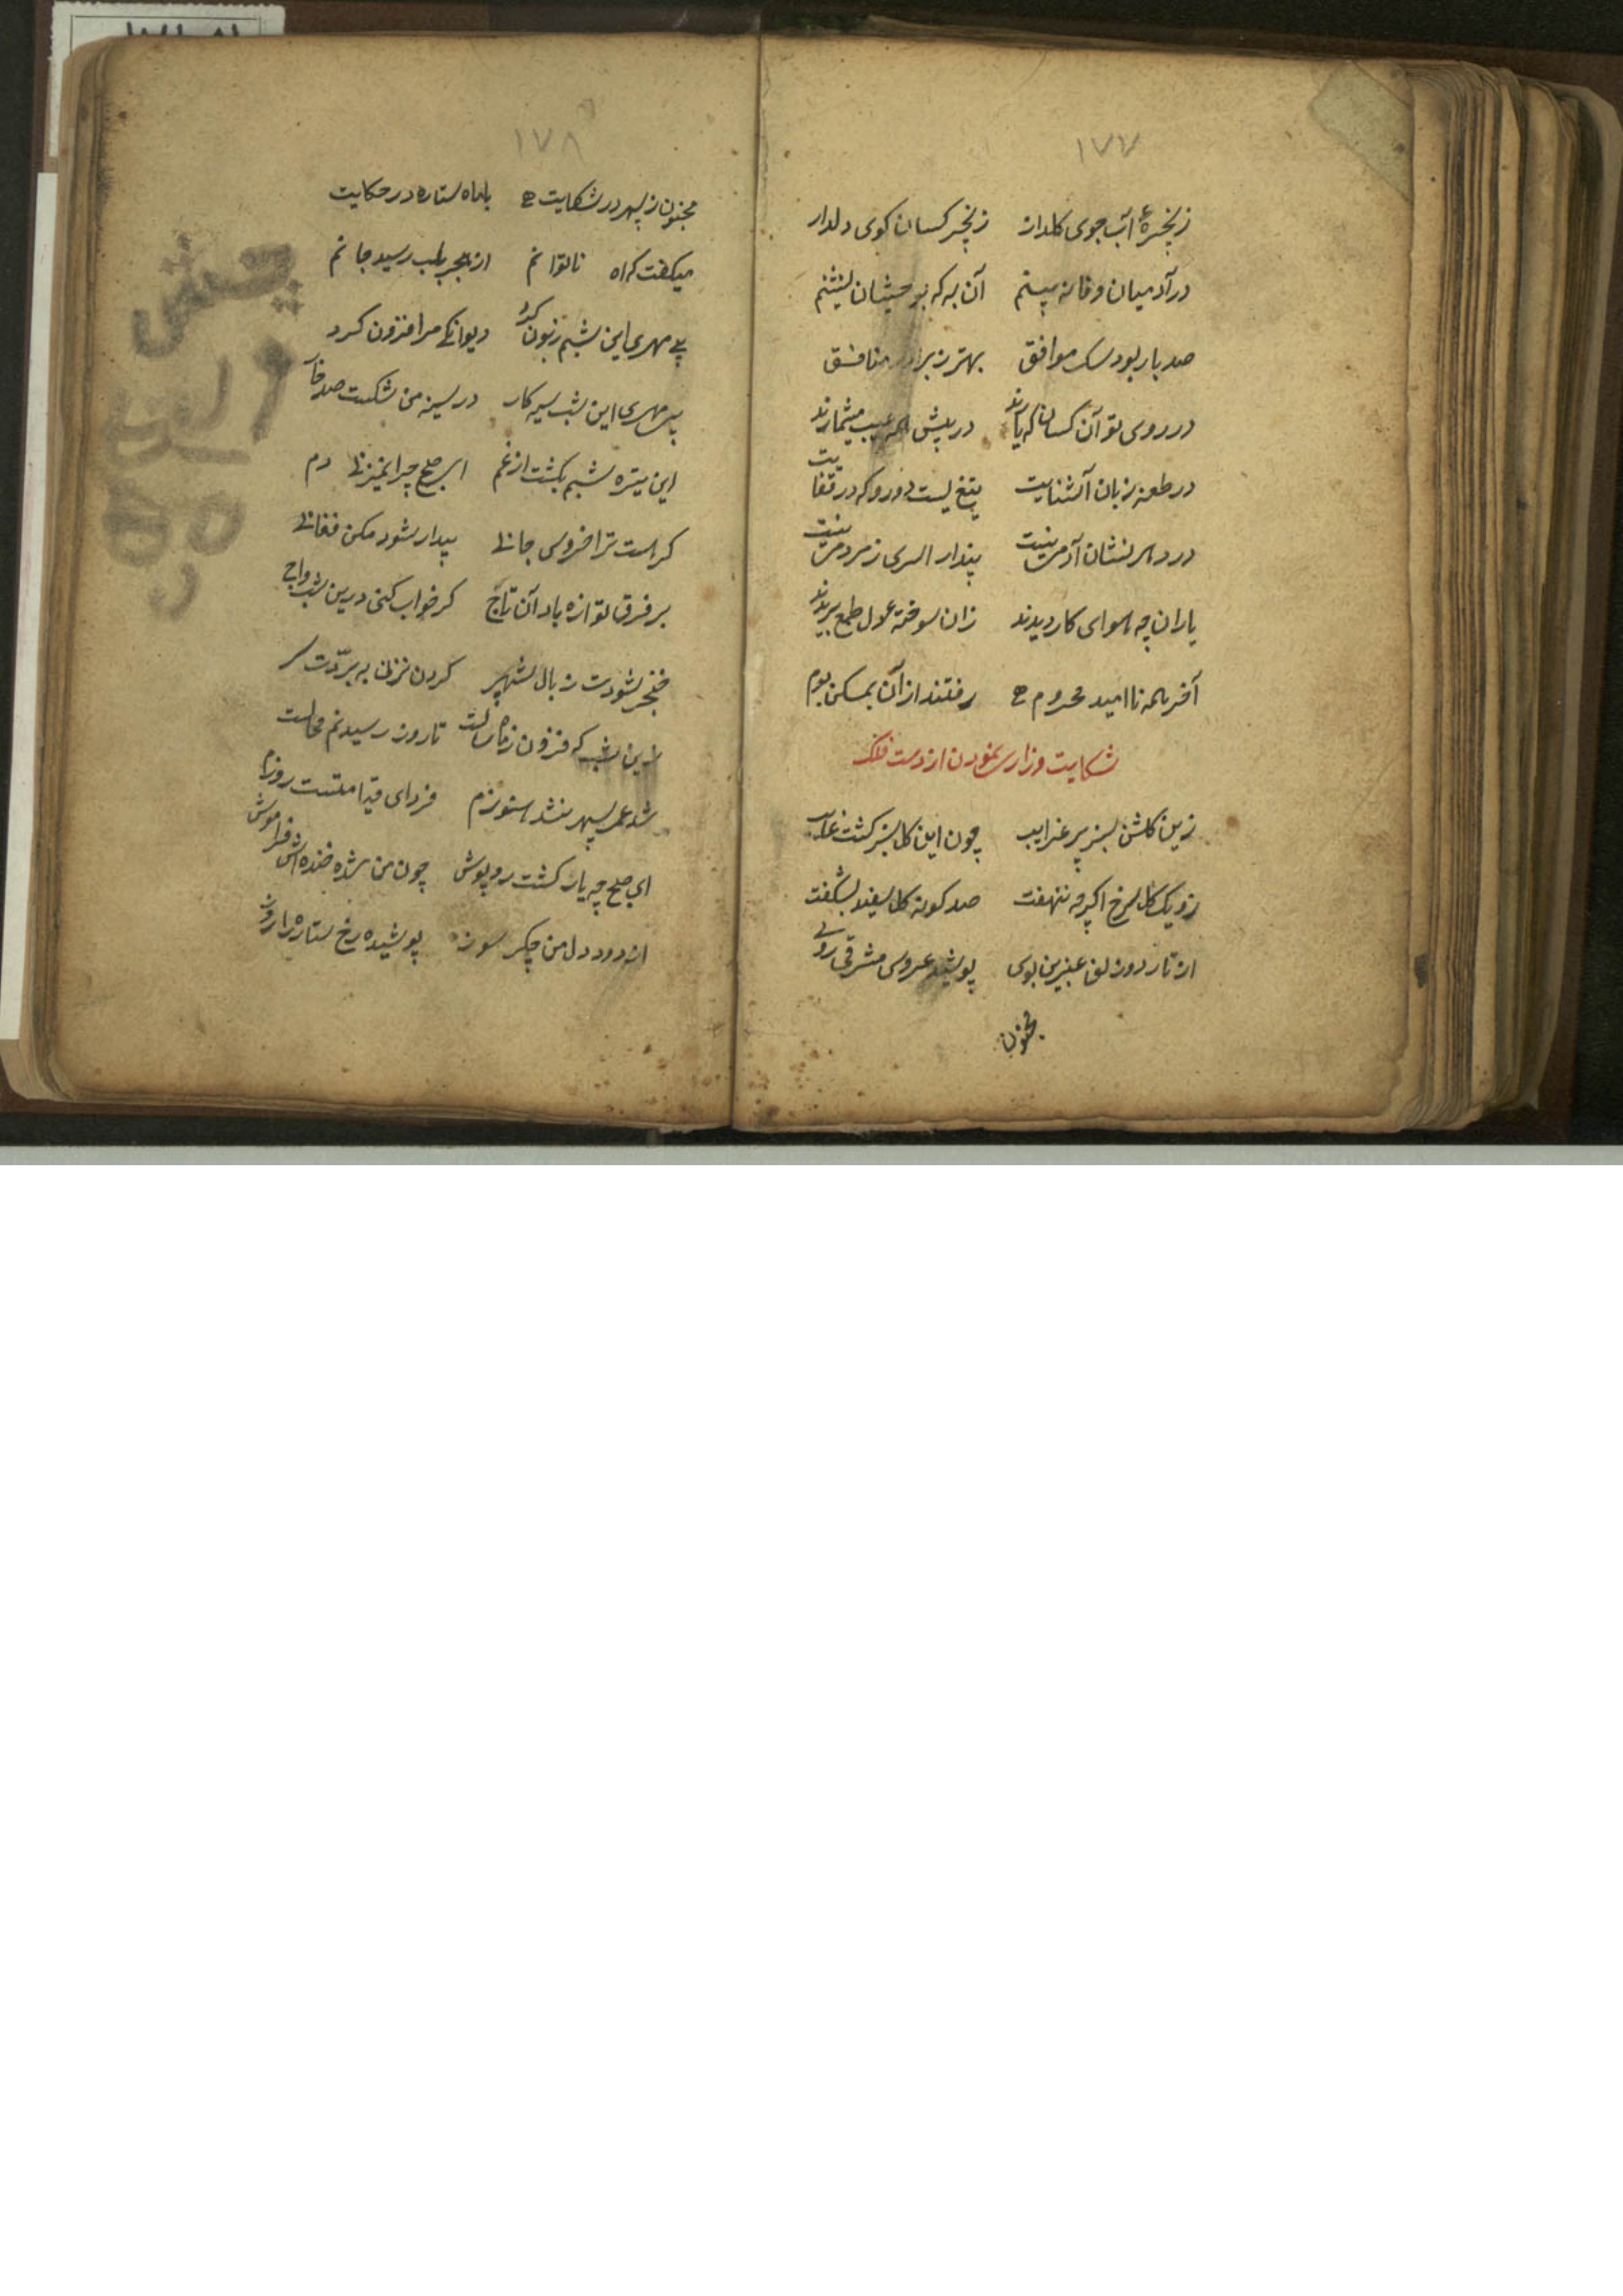 ۱۷۷
زنجیرهٔ آب جوی کلدار زنجیر کسان کوی دلدار
در آدمیان وفا نه بینم آن به که بوحشیان نشینم
صد بار بود سک موافق بهتر ز برادر منافق
در روی تو آن کسان که یارند در پیش همه عیب میشمارند
در طعنه زبان آشنایت تیغ لیست دورو که در قفایت
در دهر نشان آدمی نیست پندار اسری ز مردمی نیست
یاران چه هوای کار دیدند زان سوخته دل طمع بریدند
آخر همه ناامید و محروم رفتند از آن بمسکن بوم
شکایت وزاری نمودن از دست فلک
زین کلشن سبز پر غرایب چون این کل سبز کشت غایب
زو یک کل سرخ اکرچه بنهفت صد کونه کل سفید بشکفت
از تار دو زلف عنبرین بوی پوشید عروس مشرقی روی
مجنون
۱۷۸
مجنون ز سپهر در شکایت با ماه ستاره در حکایت
میکفت که اه ناتوانم از هجر بلب رسید جانم
بی مهری این شبم زبون کرد دیوانکی مرا فزون کرد
بی مهری این شب سیه کار در سینه من شکست صد خار
این تیره شبم بکشت از غم ای صبح چرا نمیزنی دم
کر هست ترا خروس جانی بیدار شود مکن فغانی
بر فرق تو ازه باد آن تاج کر خواب کنی درین شب داج
خنجر شودت ز بال شهپر کردن نزنی به بردت سر
این شب که فزون ز ماه و سالست تا روز رسیدنم محالست
شد عمر بسر نشد هنوزم فردای قیامتست روزم
ای صبح چه یار کشت روپوش چون من شده خنده اش فراموش
از دود دل من جکر سوز پوشیده رخ ستاره را روز